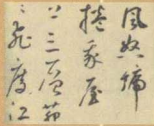 風怒號
捲我屋
上三重茆
〻飛度江